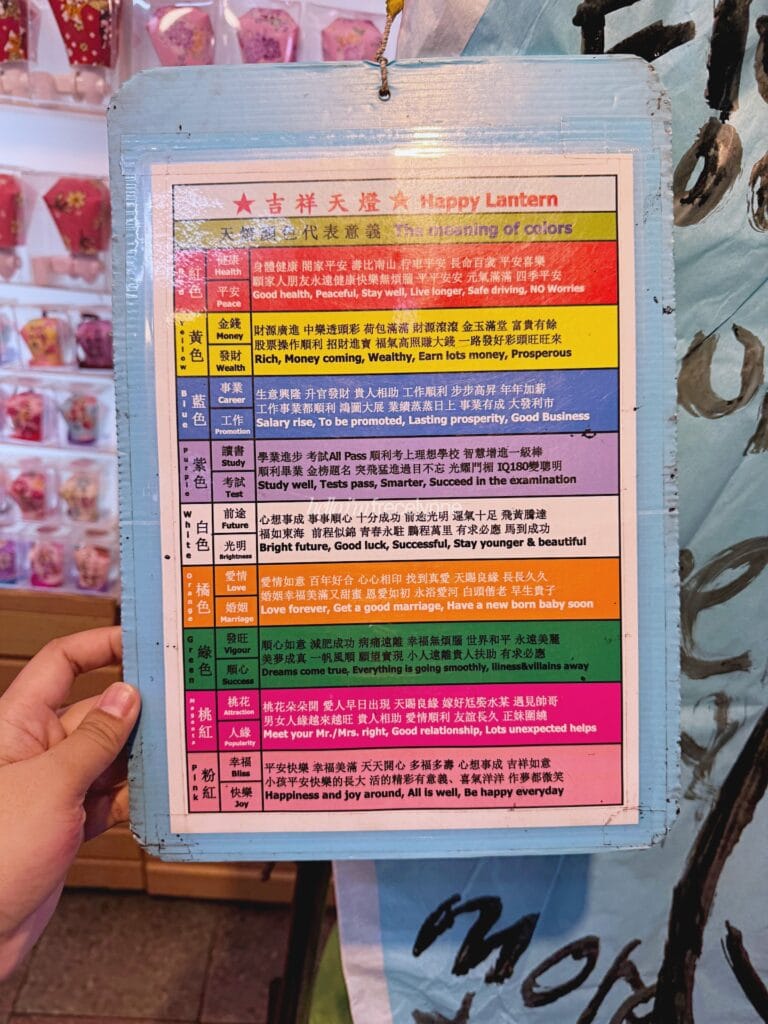 ★吉祥天燈★ Happy Lantern
天燈顏色代表意義 The meaning of colors
Red 紅色
健康
Health
平安
Peace
身體健康 闔家平安 壽比南山 行車平安 長命百歲 平安喜樂
願家人朋友永遠健康快樂無煩腦 平平安安 元氣滿滿 四季平安
Good health, Peaceful, Stay well, Live longer, Safe driving, NO Worries
Yellow 黃色
金錢
Money
發財
Wealth
財源廣進 中樂透頭彩 荷包滿滿 財源滾滾 金玉滿堂 富貴有餘
股票操作順利 招財進寶 福氣高照賺大錢 一路發好彩頭旺旺來
Rich, Money coming, Wealthy, Earn lots money, Prosperous
Blue 藍色
事業
Career
工作
Promotion
生意興隆 升官發財 貴人相助 工作順利 步步高昇 年年加薪
工作事業都順利 鴻圖大展 業績蒸蒸日上 事業有成 大發利市
Salary rise, To be promoted, Lasting prosperity, Good Business
Purple 紫色
讀書
Study
考試
Test
學業進步 考試All Pass 順利考上理想學校 智慧增進一級棒
順利畢業 金榜題名 突飛猛進過目不忘 光耀門楣 IQ180變聰明
Study well, Tests pass, Smarter, Succeed in the examination
White 白色
前途
Future
光明
Brightness
心想事成 事事順心 十分成功 前途光明 運氣十足 飛黃騰達
福如東海 前程似錦 青春永駐 鵬程萬里 有求必應 馬到成功
Bright future, Good luck, Successful, Stay younger & beautiful
Orange 橘色
愛情
Love
婚姻
Marriage
愛情如意 百年好合 心心相印 找到真愛 天賜良緣 長長久久
婚姻幸福美滿又甜蜜 恩愛如初 永浴愛河 白頭偕老 早生貴子
Love forever, Get a good marriage, Have a new born baby soon
Green 綠色
發旺
Vigour
順心
Success
順心如意 減肥成功 病痛遠離 幸福無煩腦 世界和平 永遠美麗
美夢成真 一帆風順 願望實現 小人遠離貴人扶助 有求必應
Dreams come true, Everything is going smoothly, illiness&villains away
Magenta 桃紅
桃花
Attraction
人緣
Popularity
桃花朵朵開 愛人早日出現 天賜良緣 嫁好尪娶水某 遇見帥哥
男女人緣越來越旺 貴人相助 愛情順利 友誼長久 正妹圍繞
Meet your Mr./Mrs. right, Good relationship, Lots unexpected helps
Pink 粉紅
幸福
Bliss
快樂
Joy
平安快樂 幸福美滿 天天開心 多福多壽 心想事成 吉祥如意
小孩平安快樂的長大 活的精彩有意義、喜氣洋洋 作夢都微笑
Happiness and joy around, All is well, Be happy everyday